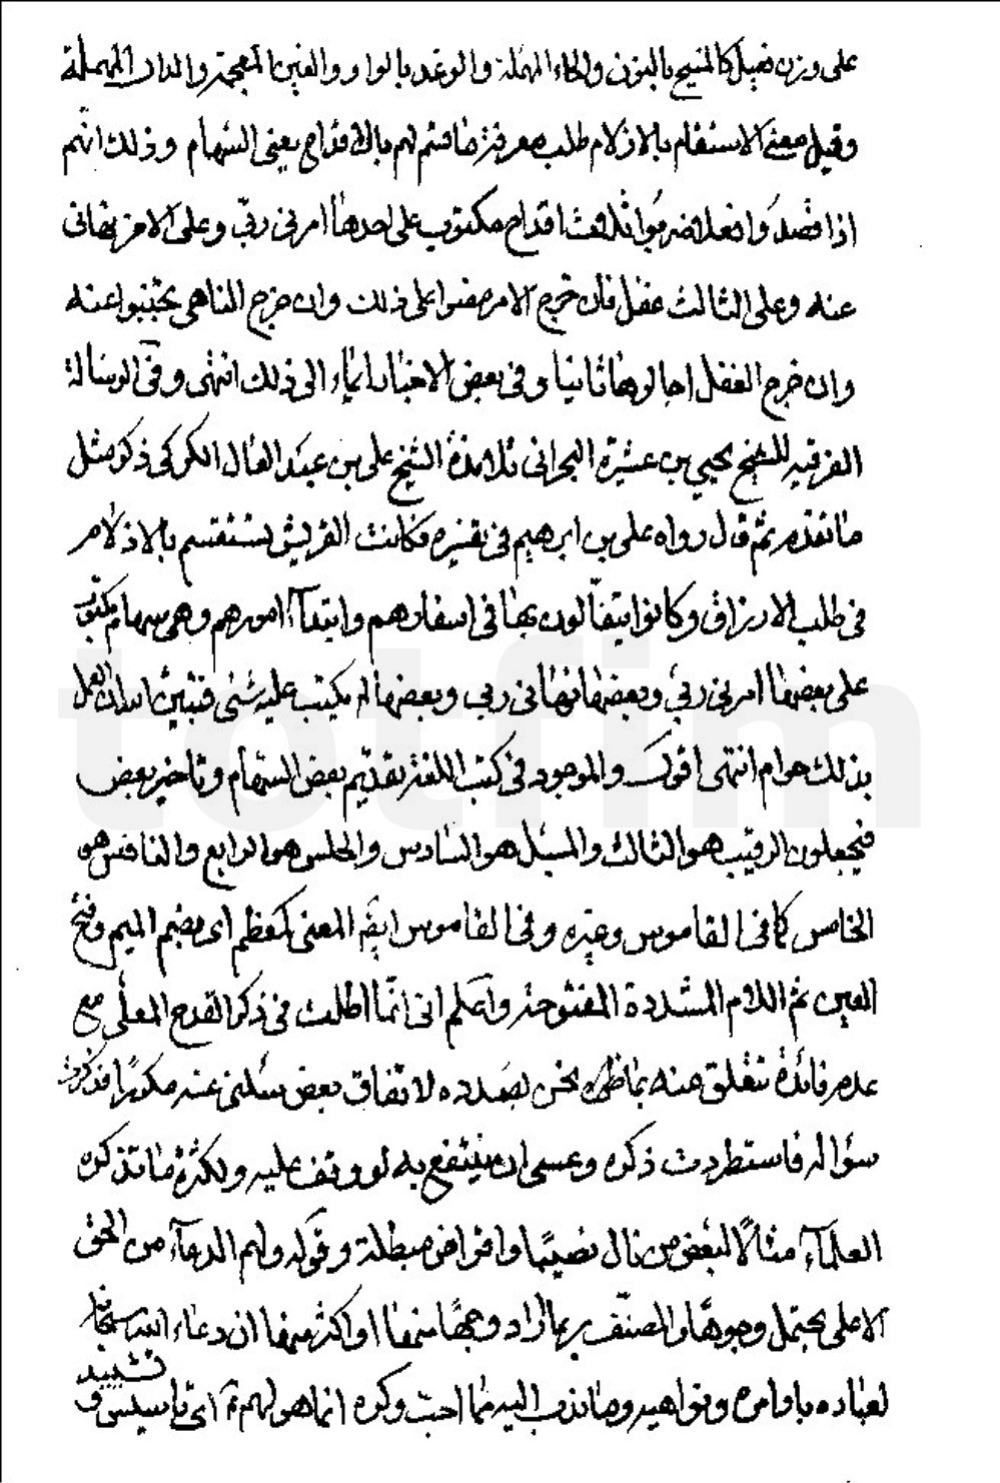 على وزن فعيل كالمنيح بالنون والحاء المهملة والوغد بالواو والغين المعجمة والدال المهملة
وقيل معنى الاستقسام بالازلام طلب معرفة ما قسم لهم بالاقداح يعني السهام وذلك انهم
اذا قصدوا فعلا ضربوا ثلاث اقداح مكتوب على احدها امرني ربي وعلى الاخر نهاني
عنه وعلى الثالث غفل فان خرج الامر مضوا على ذلك وان خرج الناهي يجتنبوا عنه
وان خرج الغفل اجالوها ثانيا وفي بعض الاخبار ايماء الى ذلك انتهى وفي الرسالة
للشيخ يحيى بن عشيرة البحراني تلامذة الشيخ علي بن عبد العال الكركي ذكر مثل
ما تقدم ثم قال رواه علي بن ابرهيم في تفسيره فكانت القريش يستقسم بالازلام
في طلب الارزاق وكانوا يتفألون بها في اسفارهم وابتدآء امورهم وهي سهام مكتوب
على بعضها امرني ربي وبعضها نهاني ربي وبعضها لم يكتب عليه شئ فتبين ان العمل
بذلك حرام انتهى اقول والموجود في كتب اللغة تقديم بعض السهام وتاخير بعض
فيجعلون الرقيب هو الثالث والمسبل هو السادس والحلس هو الرابع والنافس هو
الخامس كما في القاموس وغيره وفي القاموس ايضا المعلى كمعظم اى بضم الميم وفتح
العين ثم اللام المشددة المفتوحة واعلم انى انما اطلت في ذكر القدح المعلى مع
عدم فائدة تتعلق منه بما نحن بصدده لاتفاق بعض سئلني عنه مكررا فذكرت
سؤاله فاستطردت ذكره وعسى ان ينتفع به لو وقف عليه ولكثرة ما تذكره
العلمآء مثالا لبعض من نال نصيبا وافرا في مبطلة وقوله ولهم الدعآء من الحق
الاعلى يحتمل وجوها والمصنف ربما اراد وجها منها او اكثر منها ان دعاء الله سبحانه
لعباده باوامره ونواهيه وما ندب اليه مما احب وكره انما هو لهم اى تاسيس
تشييد
totfim